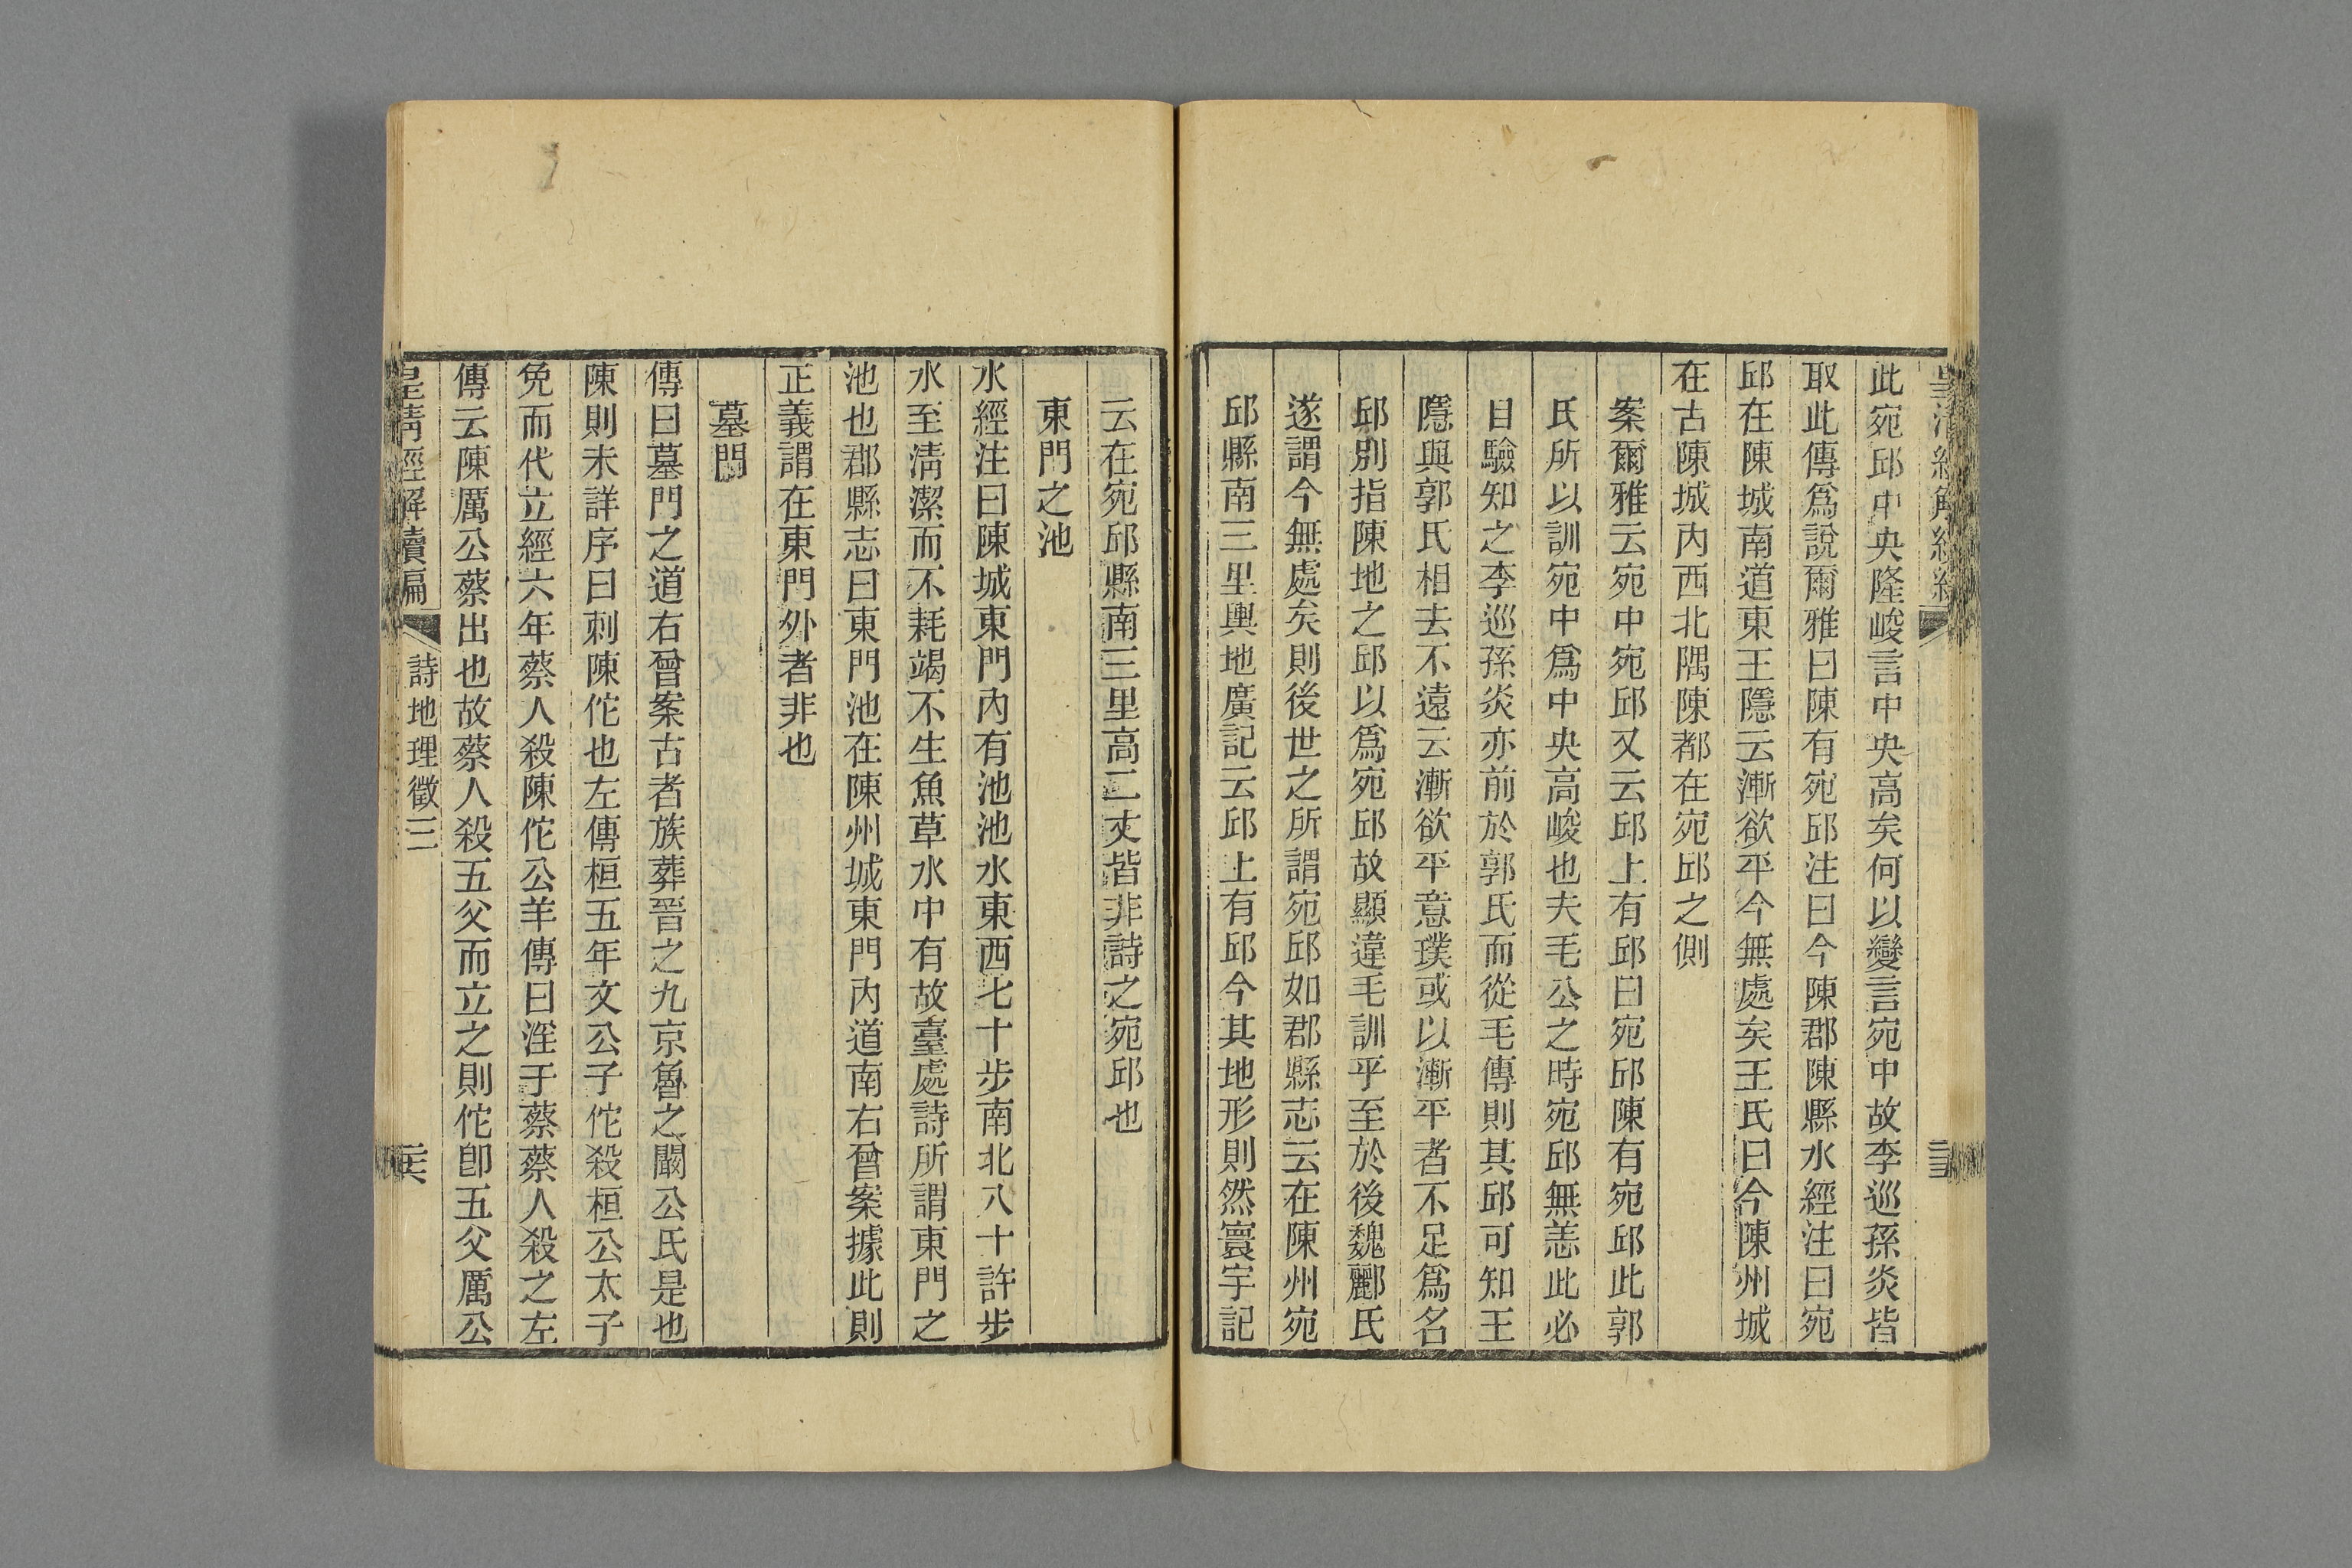 此宛邱中央隆峻言中央高矣何以變言宛中故李巡孫炎皆
取此傳爲說爾雅曰陳有宛邱注曰今陳郡陳縣水經注曰宛
邱在陳城南道東王隱云漸欲平今無處矣王氏曰今陳州城
在古陳城內西北隅陳都在宛邱之側
案爾雅云宛中宛邱又云邱上有邱曰宛邱陳有宛邱此郭
氏所以訓宛中爲中央高峻也夫毛公之時宛邱無恙此必
目驗知之李巡孫炎亦前於郭氏而從毛傳則其邱可知王
隱與郭氏相去不遠云漸欲平意璞或以漸平者不足爲名
邱別指陳地之邱以爲宛邱故顯違毛訓乎至於後魏酈氏
遂謂今無處矣則後世之所謂宛邱如郡縣志云在陳州宛
邱縣南三里輿地廣記云邱上有邱今其地形則然寰宇記
云在宛邱縣南三里高二丈皆非詩之宛邱也
東門之池
水經注曰陳城東門內有池池水東西七十步南北八十許步
水至清潔而不耗竭不生魚草水中有故臺處詩所謂東門之
池也郡縣志曰東門池在陳州城東門內道南右曾案據此則
正義謂在東門外者非也
墓門
傳曰墓門之道右曾案古者族葬晉之九京魯之闞公氏是也
陳則未詳序曰刺陳佗也左傳桓五年文公子佗殺桓公太子
免而代立經六年蔡人殺陳佗公羊傳曰淫于蔡蔡人殺之左
傳云陳厲公蔡出也故蔡人殺五父而立之則佗卽五父厲公
皇清經解續編
詩地理徵三